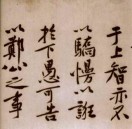 于上智亦不
以驕慢以誑
於下愚可告
以鄭公之事